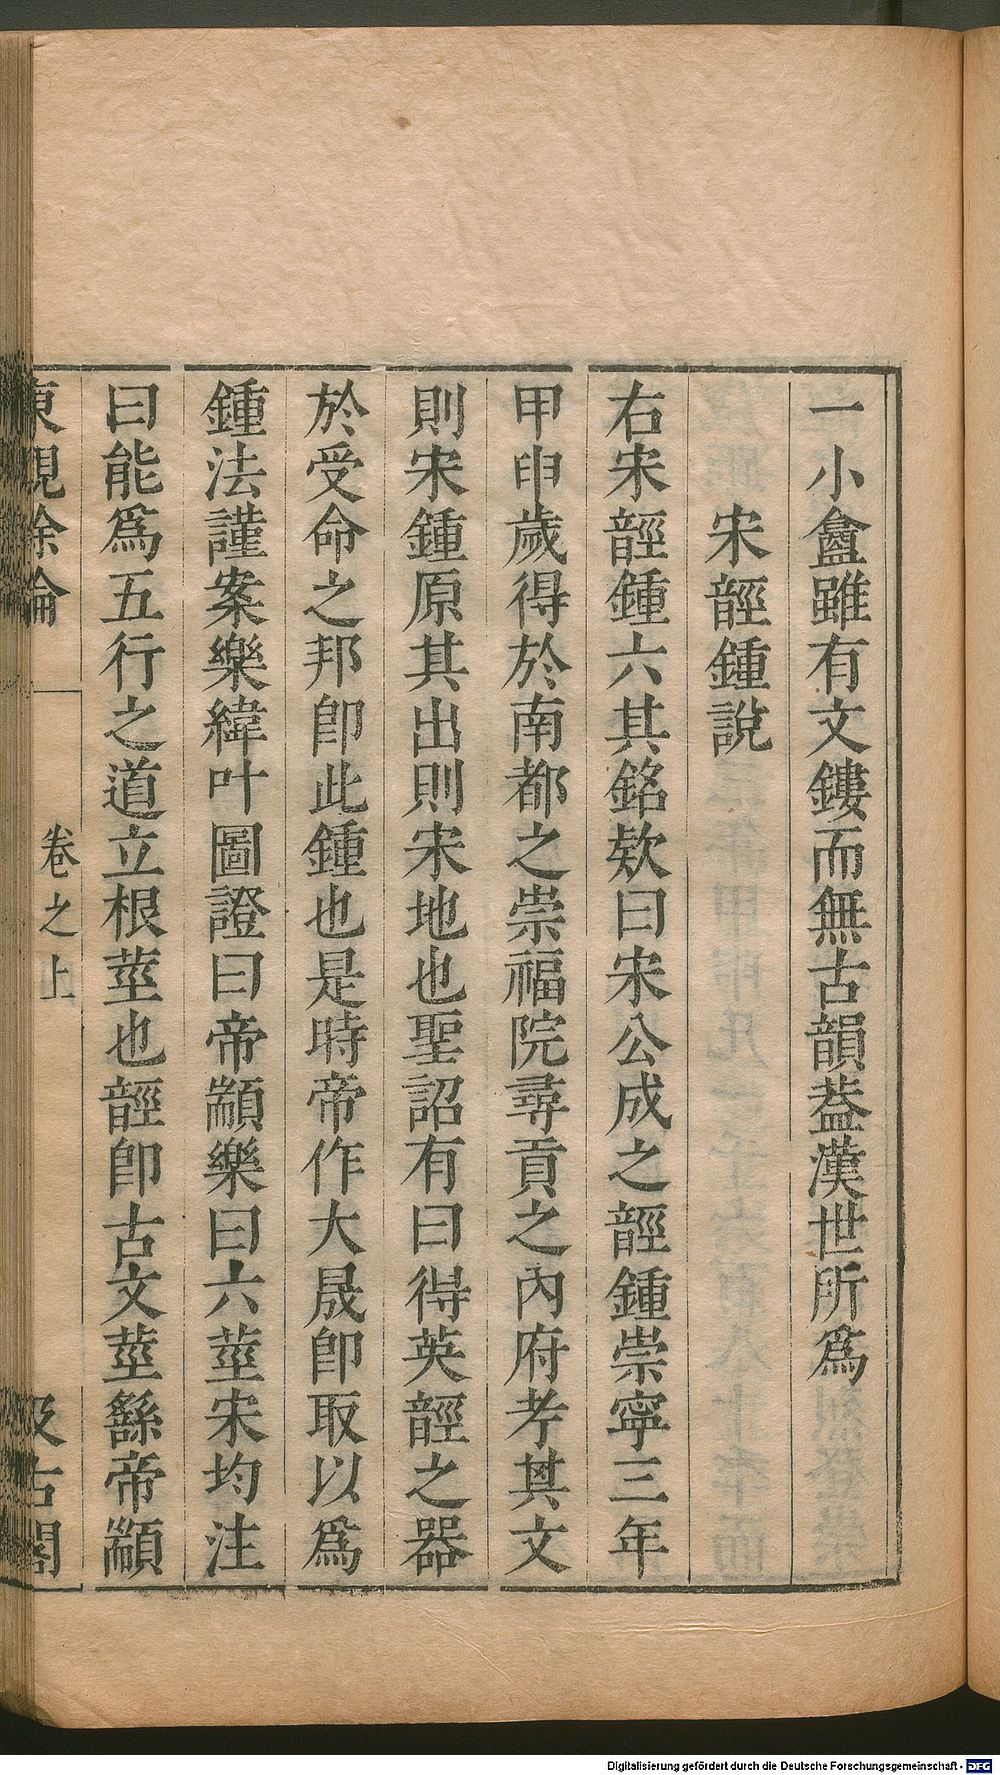 一小奩雖有文鏤而無古韻葢漢世所爲
宋䪫鍾說
右宋䪫鍾六其銘欵曰宋公成之䪫鍾崇寧三年
甲申歲得於南都之崇福院尋貢之內府考其文
則宋鍾原其出則宋地也聖詔有曰得英䪫之器
於受命之邦卽此鍾也是時帝作大晟卽取以爲
鍾法謹案樂緯叶圖證曰帝顓樂曰六莖宋均注
曰能爲五行之道立根莖也䪫卽古文莖繇帝顓
東觀餘論 卷之上 汲古閣
Digitalisierung gefördert durch die Deutsche Forschungsgemeinschaft - DFG